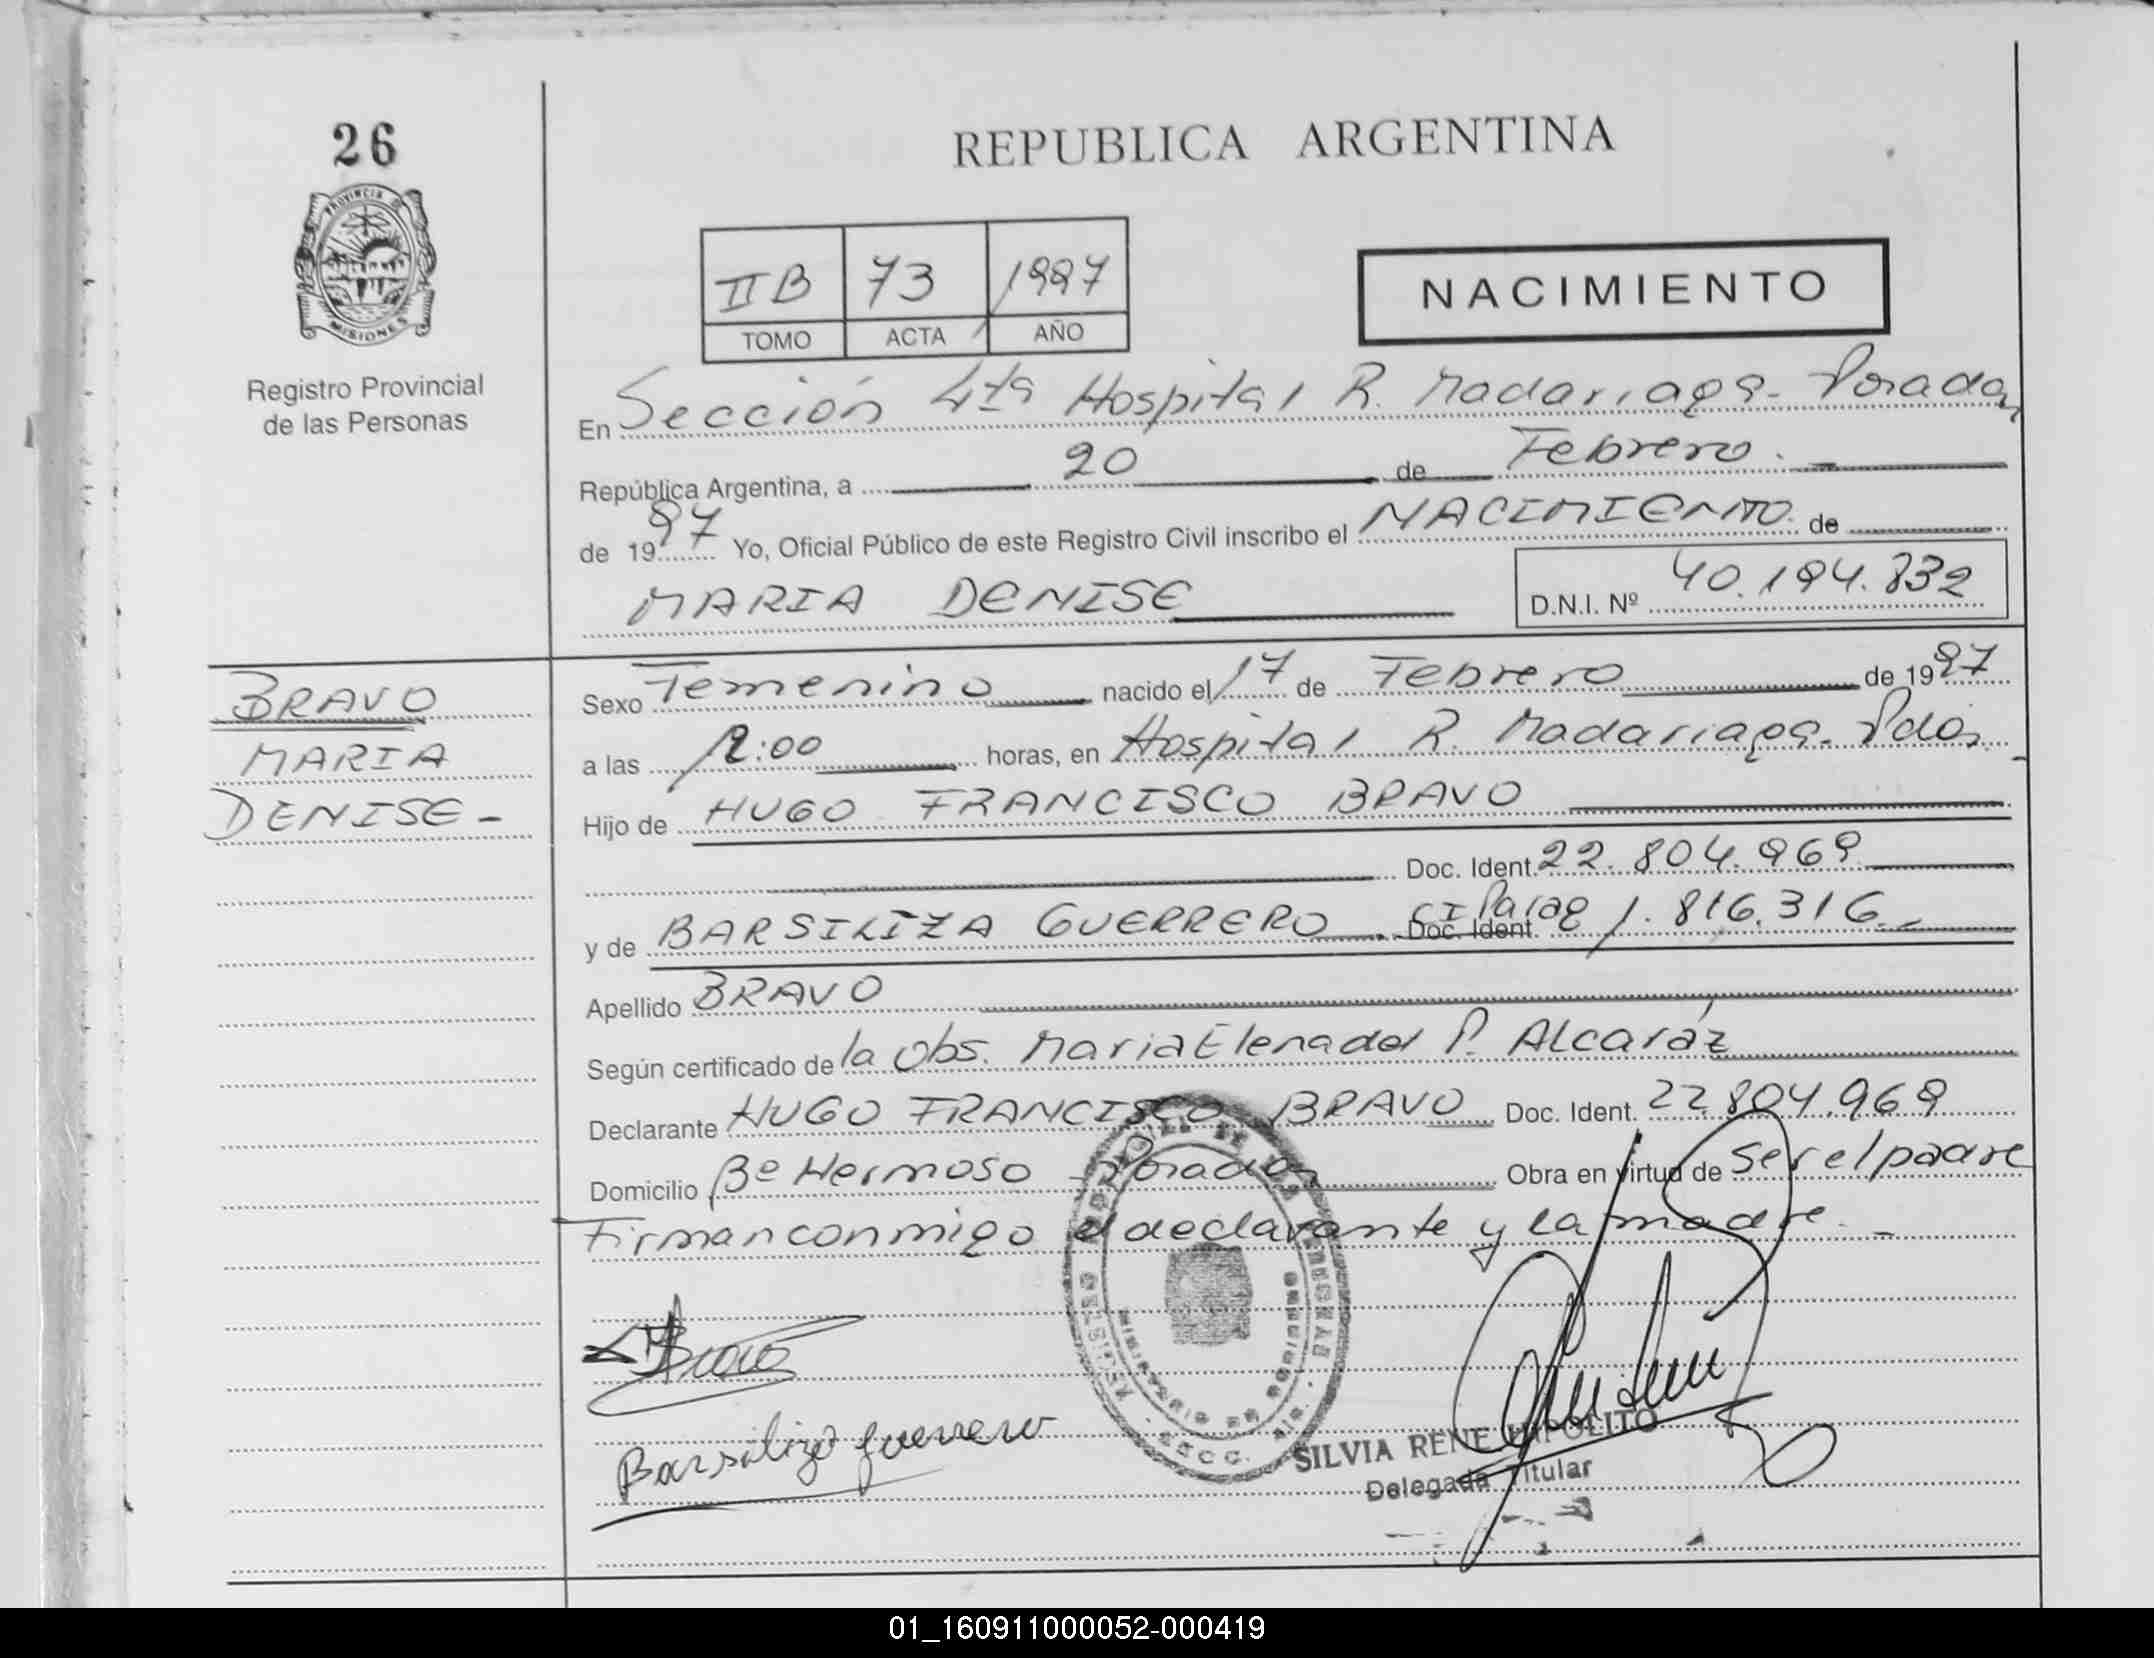 26
PROVINCIA DE
MISIONES
Registro Provincial
de las Personas
REPUBLICA ARGENTINA
II B 73 1997
TOMO ACTA AÑO
NACIMIENTO
En Sección 4ta Hospital R. Madariaga - Posadas
República Argentina, a 20 de Febrero. -
de 1997 Yo, Oficial Público de este Registro Civil inscribo el NACIMIENTO de
MARIA DENISE D.N.I. Nº 40.194.832
BRAVO
MARIA
DENISE -
Sexo Femenino nacido el 17 de Febrero de 1997
a las 12:00 horas, en Hospital R. Madariaga - Pdas
Hijo de HUGO FRANCISCO BRAVO
Doc. Ident. 22.804.969
y de BARSILIZA GUERRERO Doc. Ident CI Parag 1.816.316. -
Apellido BRAVO
Según certificado de la Obs. Maria Elena del P. Alcaráz
Declarante HUGO FRANCISCO BRAVO Doc. Ident. 22.804.969
Domicilio Bº Hermoso - Posadas Obra en virtud de ser el padre
Firman conmigo el declarante y la madre. -
Bravo
Barsiliza Guerrero
SILVIA RENE HIPOLITO
Delegada Titular
01_160911000052-000419